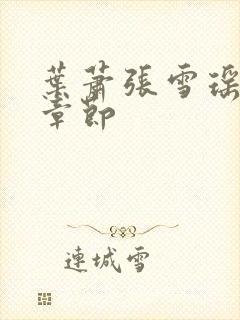 葉蕭張雪瑶
章節
連城雪